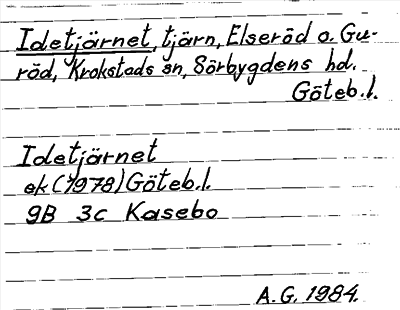 Idetjärnet, tjärn, Elseröd o. Gu-
röd, Krokstads sn, Sörbygdens hd.
Göteb.l.
Idetjärnet
ek (1978) Göteb.l.
9B 3c Kasebo
A.G. 1984.